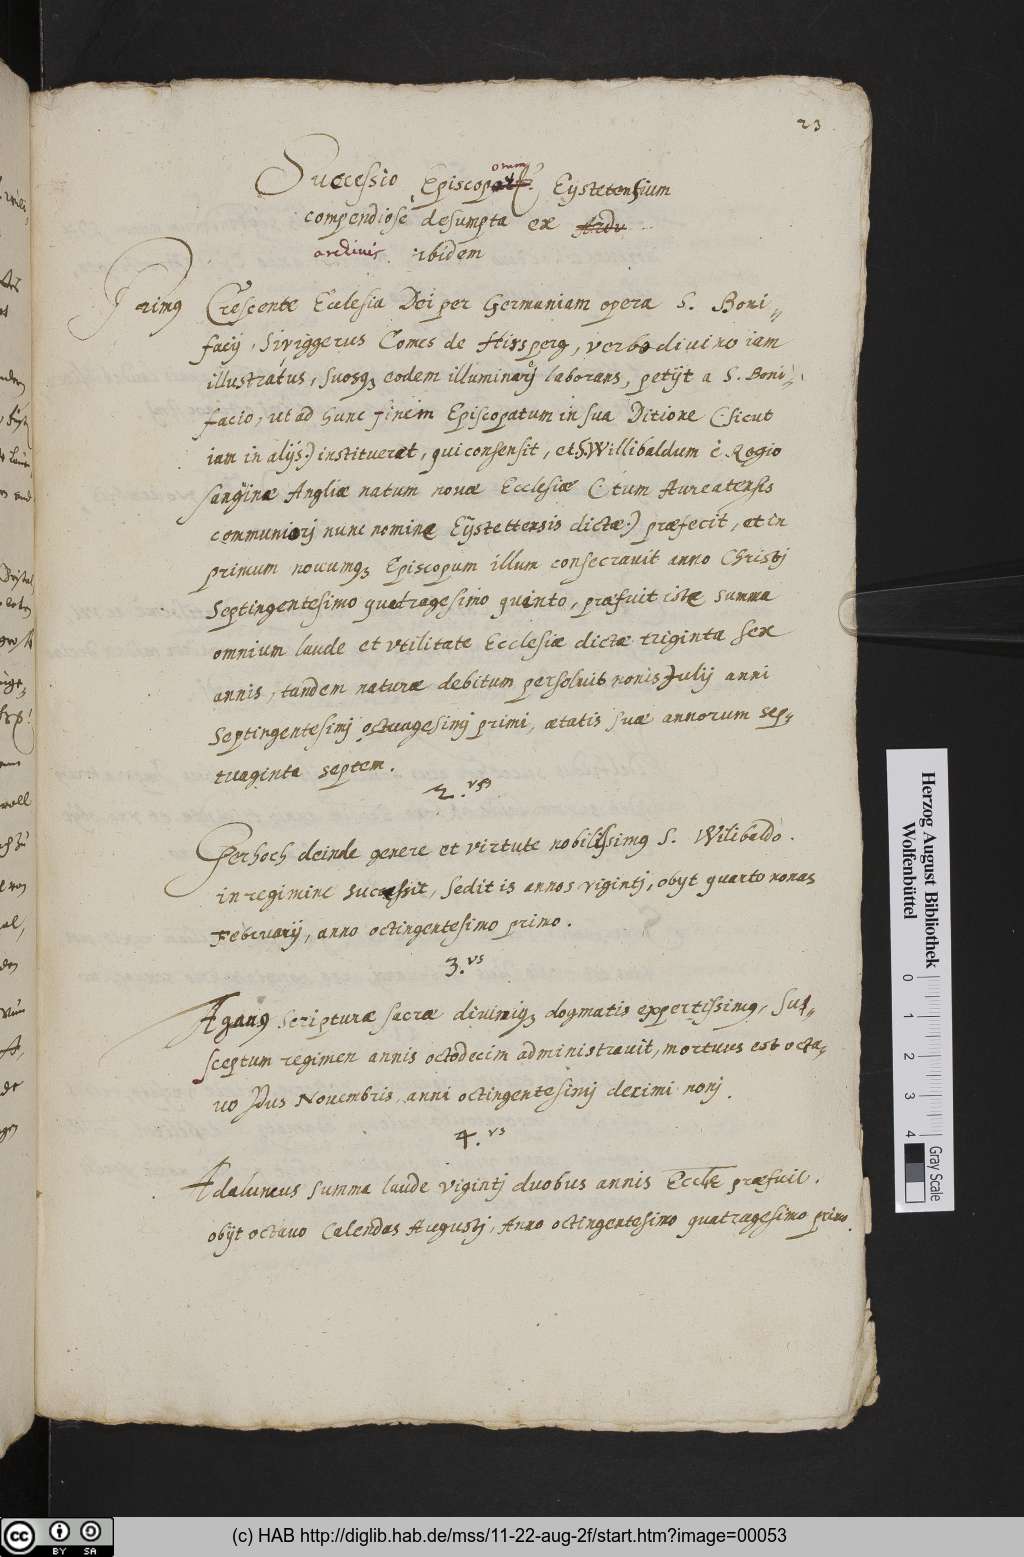 23
Successio Episcoporum Eystetensium
compendiosè desumpta ex Ardv
archivis ibidem
Primus Crescente Ecclesia Dei per Germaniam opera S. Boni„
facij, Siviggerus Comes de Hirsperg, verbo divino iam
illustratus, suosq₃ eodem illuminarj laborans, petijt a S. Boni„
facio, ut ad hunc finem Episcopatum in sua Ditione (sicut
iam in alijs.) institueret, qui consensit, et S. Willibaldum è Regio
sangvine Angliæ natum novæ Ecclesiæ (tum Aureatensis
communiorj nunc nomine Eÿstettensis dictæ.) præfecit, et in
primum novumq₃ Episcopum illum consecravit anno Christj
Septingentesimo quatragesimo quinto, præfuit istæ summa
omnium laude et vtilitate Ecclesiæ dictæ triginta sex
annis, tandem naturæ debitum persoluit nonis Julij anni
Septingentesimj octuagesimj primi, ætatis suæ annorum sep„
tuaginta septem.
2.vs
Gerhoch deinde genere et virtute nobilissimꝯ S. Wilibaldo.
in regimine successit, sedit is annos vigintj, obyt quarto nonas
Februarij, anno octingentesimo primo.
3.vs
Aganꝯ scripturæ sacræ divinisq₃ dogmatis expertissimꝯ, Su„
sceptum regimen annis octodecim administravit, mortuus est octa„
vo Idus Novembris, anni octingentesimj decimi nonj.
4.vs
Adaluncus summa laude vigintj duobus annis Eccle præfuit.
obijt octavo Calendas Augustj, Anno octingentesimo quatragesimo primo.
Herzog August Bibliothek
Wolfenbüttel
0 1 2 3 4
Gray Scale
cc BY SA
(c) HAB http://diglib.hab.de/mss/11-22-aug-2f/start.htm?image=00053